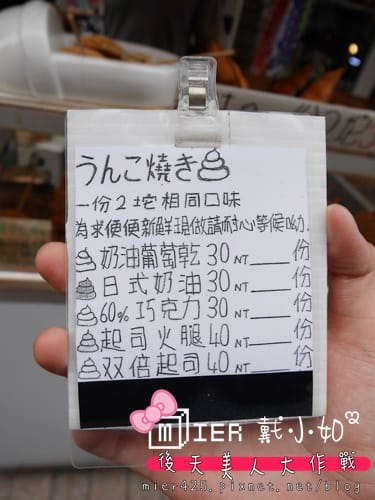 うんこ燒き
一份2坨相同口味
為求便便新鮮現做請耐心等侯呦.
奶油葡萄乾30NT____份
日式奶油30NT____份
60%巧克力30NT____份
起司火腿40NT____份
双倍起司40NT____份
MIER 戴小如
後天美人大作戰
mier425.pixnet.net/blog